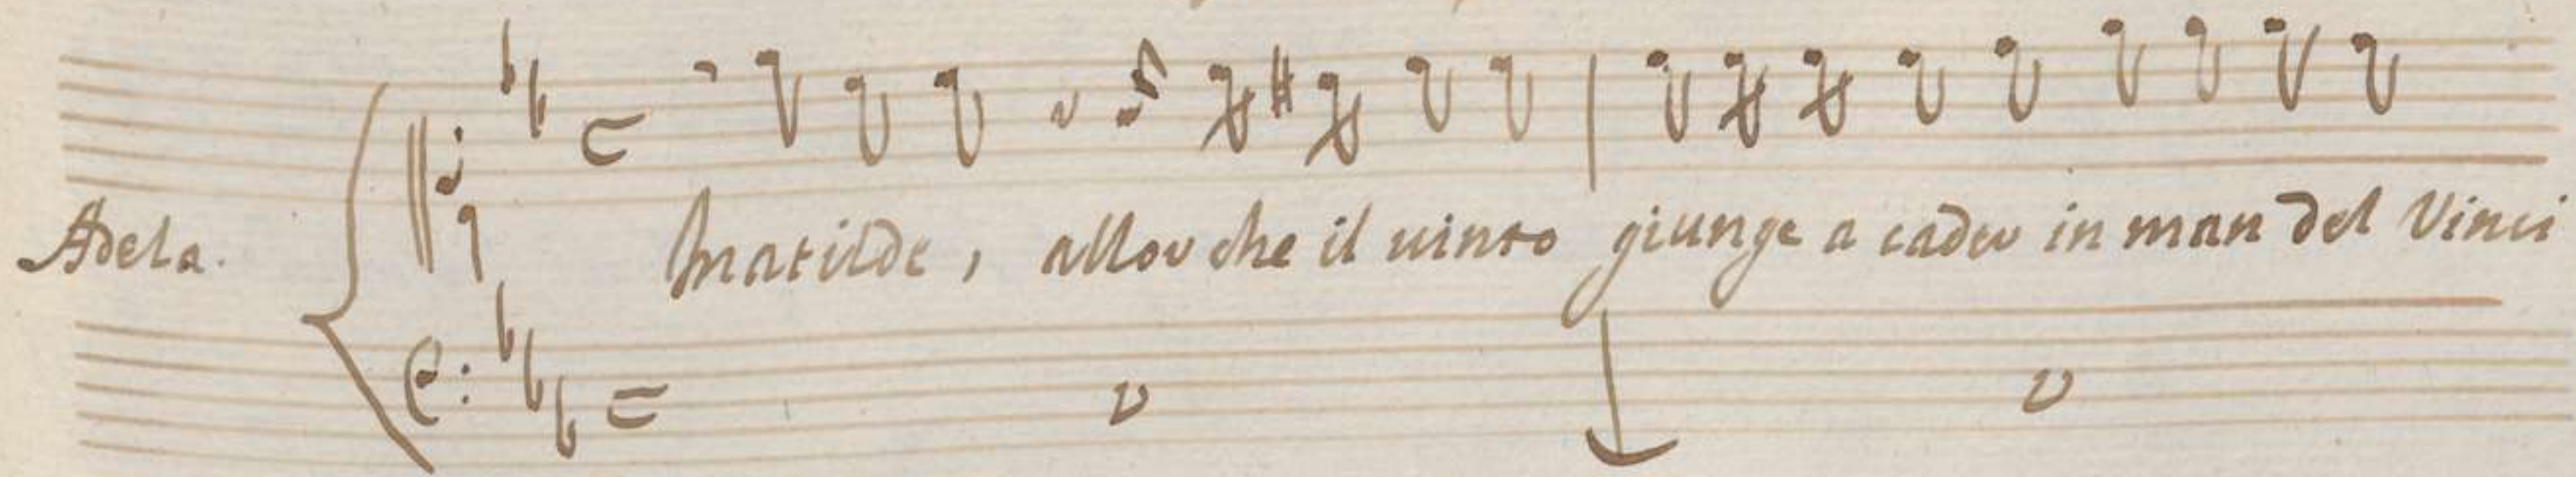 Adela. Matilde, allor che il uinto giunge a cader in man del Vinci